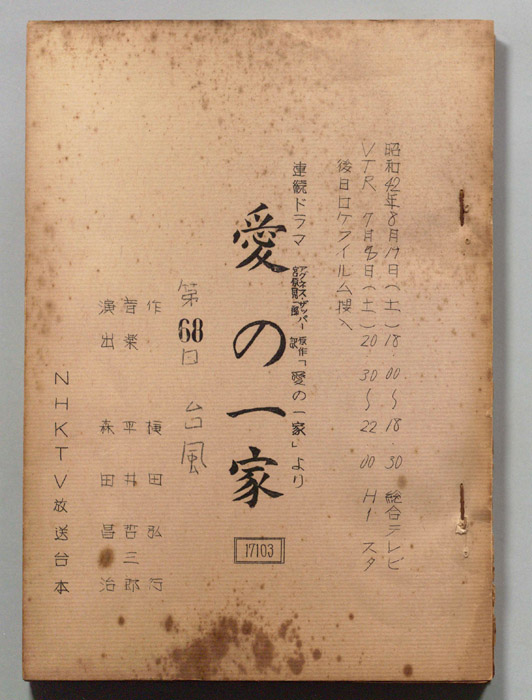 昭和42年8月19日(土)18.00〜18.30 総合テレビ
VTR 7月8日(土)20.30〜22.00 H1スタ
後日ロケフイルム挿入
連続ドラマ
アグネス・ザッパー原作
訳
「愛の一家」より
愛の一家
17103
第68回 台風
作 横田弘行
音楽 平井哲三郎
演出 森田昌治
NHKTV放送台本